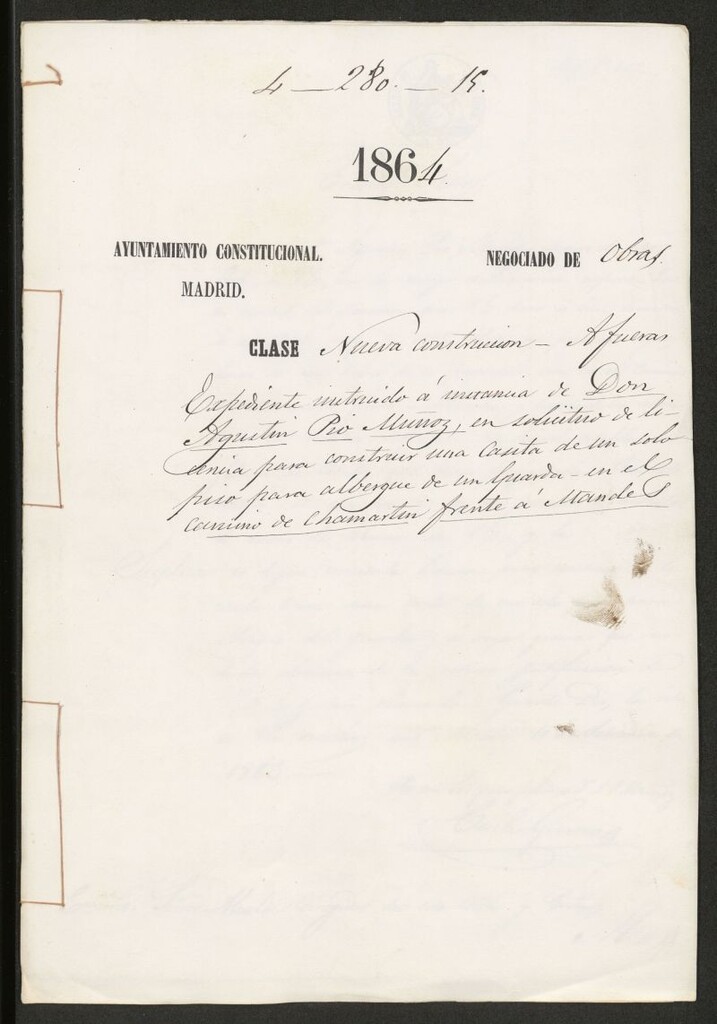 4 — 280. — 15.
1864
AYUNTAMIENTO CONSTITUCIONAL.
MADRID.
NEGOCIADO DE Obras.
CLASE Nueva construccion – Afueras
Expediente instruido á instancia de Don
Agustin Pio Muñoz, en solicitud de li-
cencia para construir una Casita de un solo
piso para albergue de un Guarda – en el
camino de Chamartin frente á Maudes